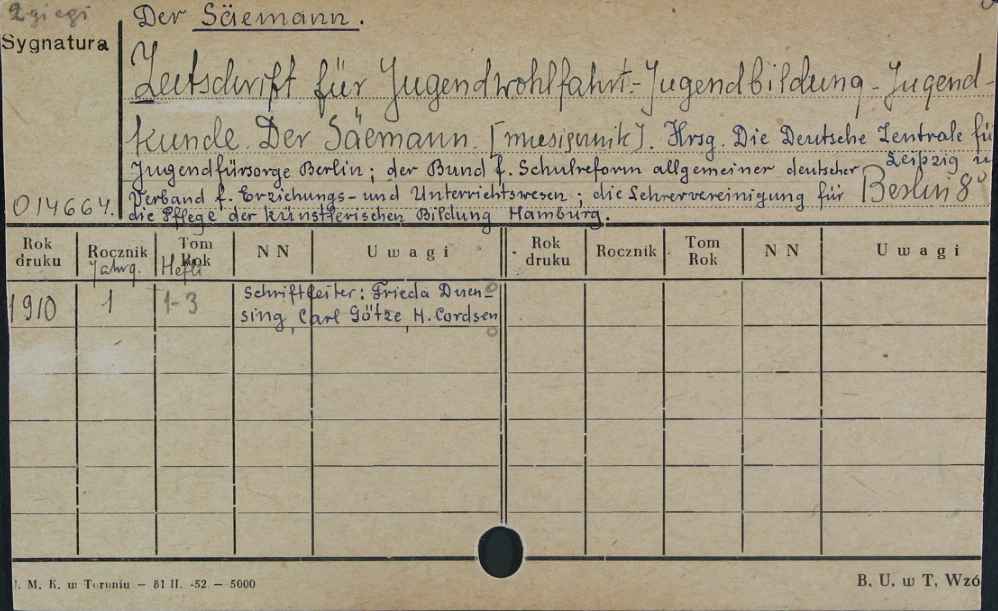 Der Säemann.
Sygnatura
Zeitschrift für Jugendwohlfahrt - Jugendbildung - Jugend-
kunde. Der Säemann. [miesięcznik]. Hrsg. Die Deutsche Zentrale fü
Jugendfürsorge Berlin; der Bund f. Schulreform allgemeiner deutscher Leipzig u
Verband f. Erziehungs- und Unterrichtswesen; die Lehrervereinigung für Berlin 8°
014664. die Pflege der künstlerischen Bildung Hamburg.
Rok druku Rocznik Tom Rok NN Uwagi Rok druku Rocznik Tom Rok NN Uwagi
Jahrg. Hefte
1910 1 1-3 Schriftleiter: Frieda Duen-
sing, Carl Götze, H. Cordsen
. M. K. w Toruniu — 51 II. -52 — 5000 B. U. w T. Wzó